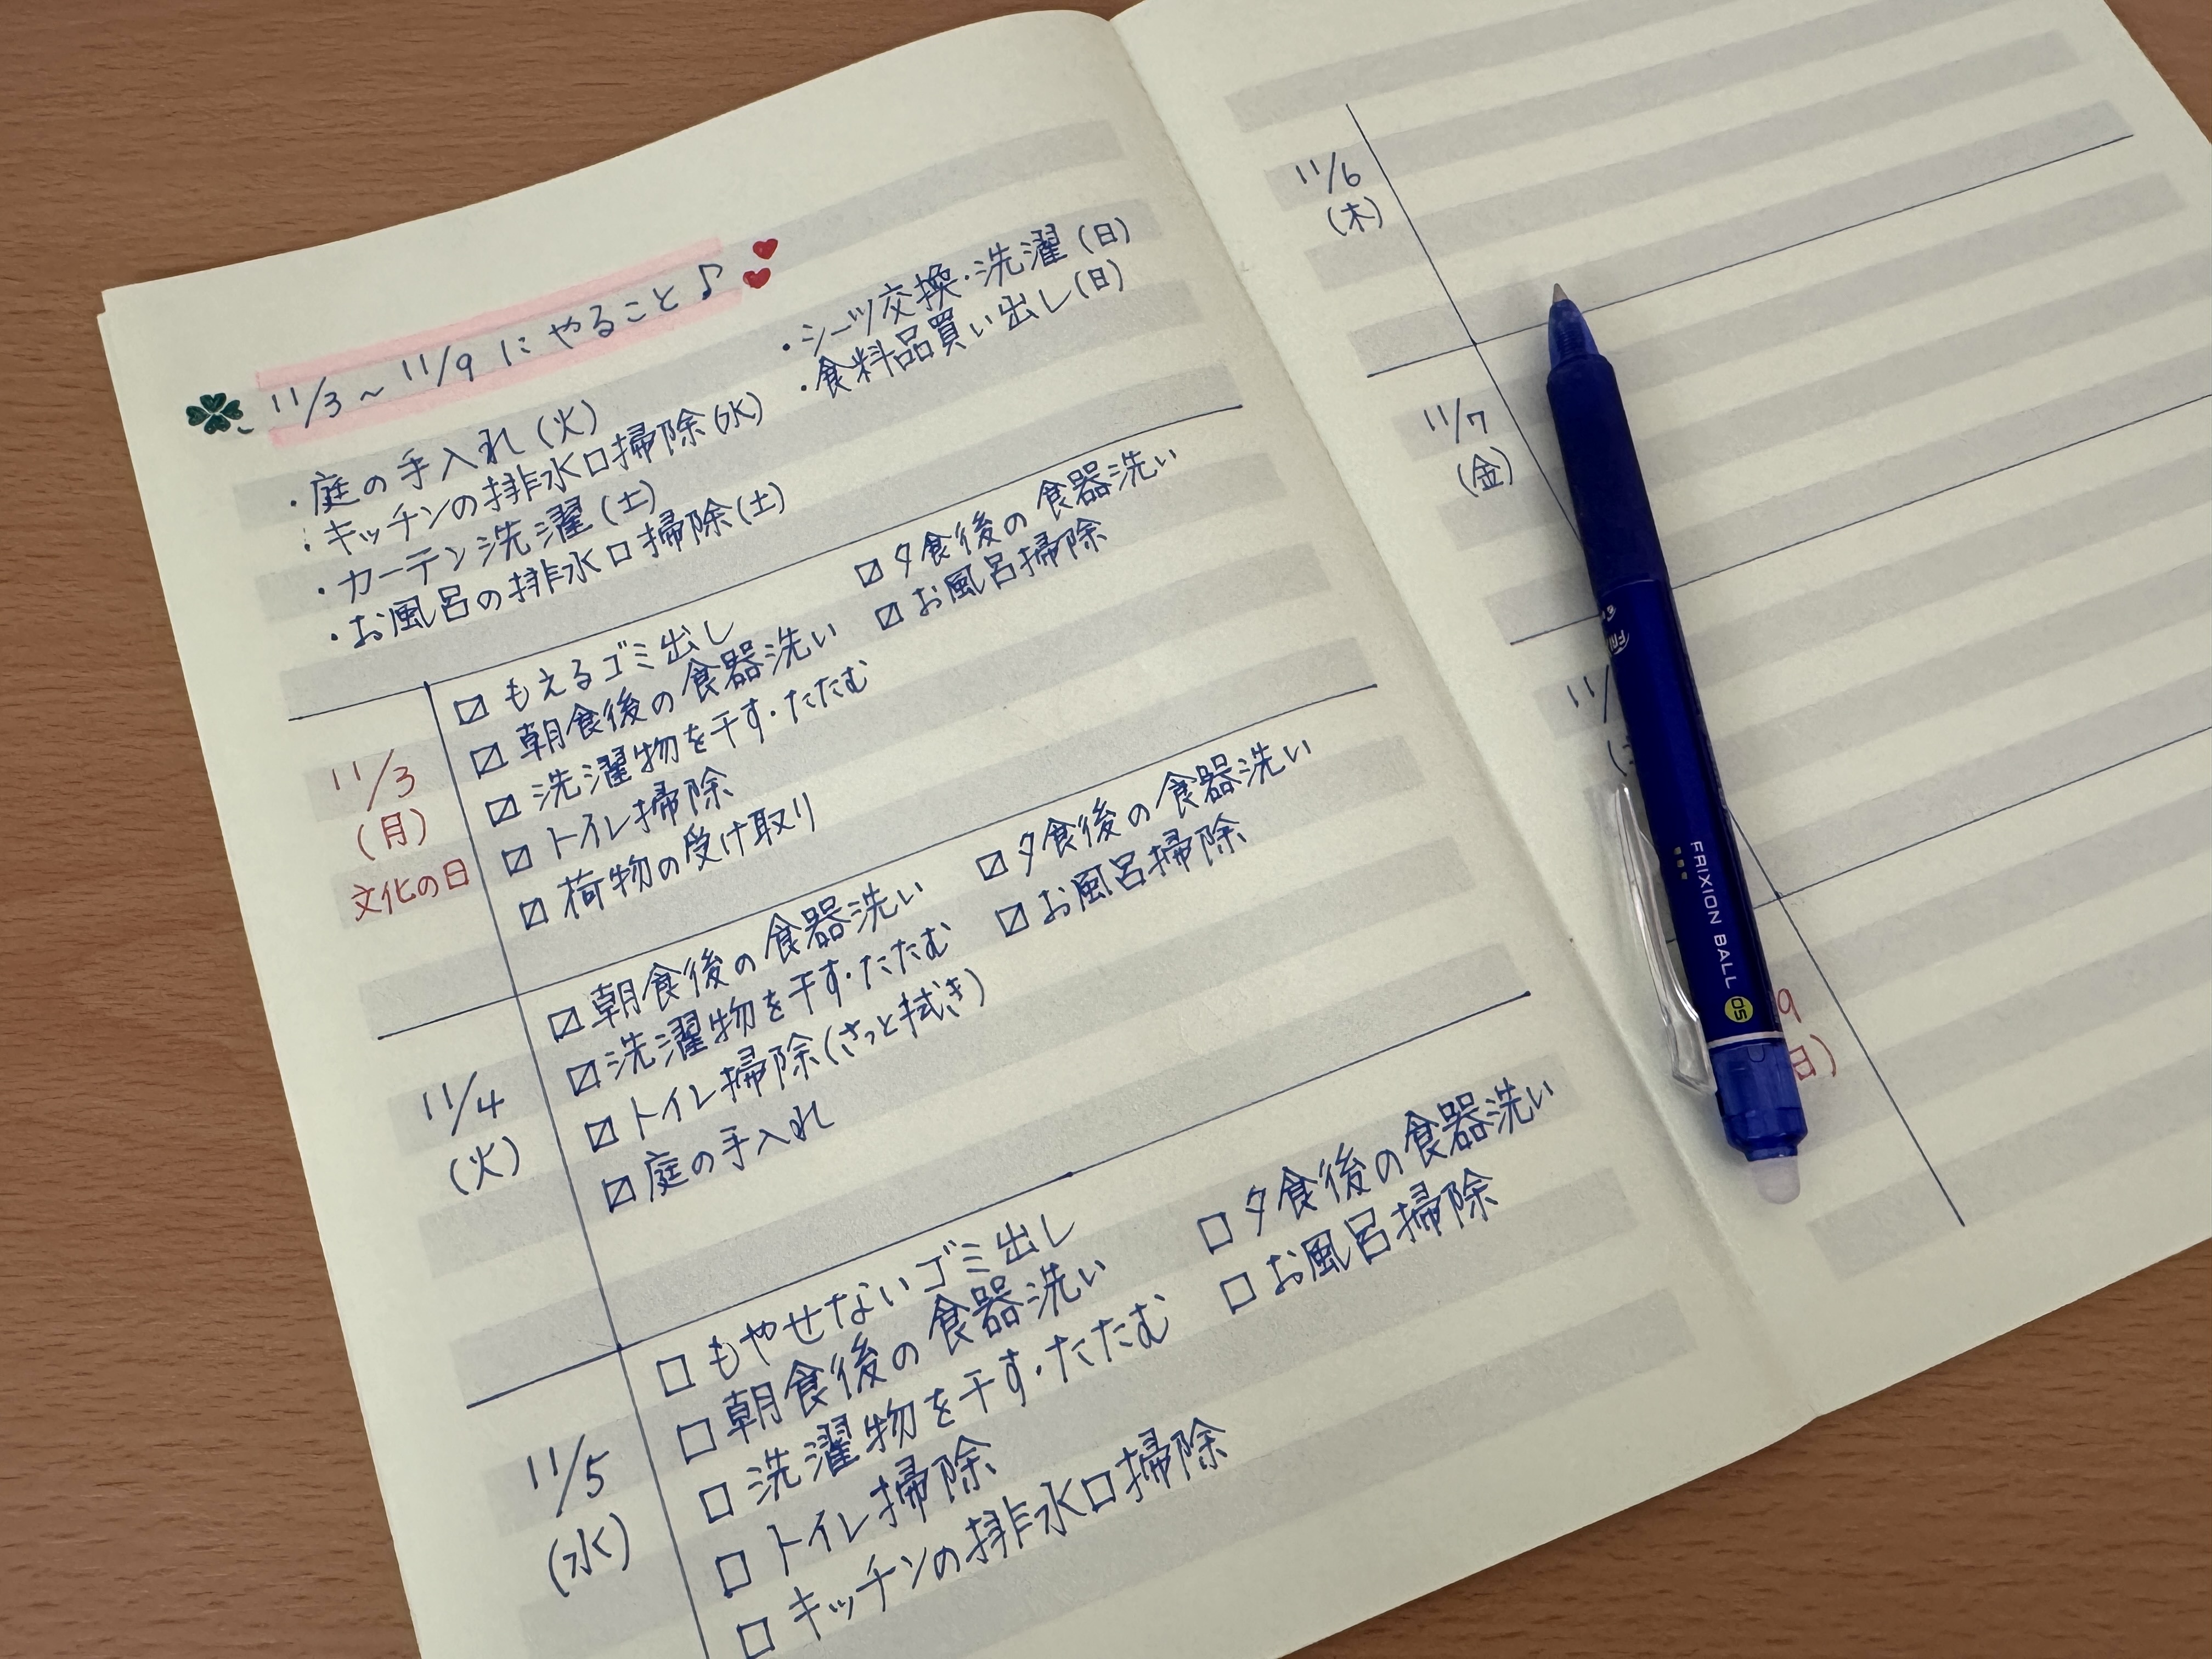 11/3～11/9にやること♪
・庭の手入れ(火)
・キッチンの排水口掃除(水)
・カーテン洗濯(土)
・お風呂の排水口掃除(土)
・シーツ交換・洗濯(日)
・食料品買い出し(日)
11/3
(月)
文化の日
☑もえるゴミ出し
☑朝食後の食器洗い
☑洗濯物を干す・たたむ
☑トイレ掃除
☑荷物の受け取り
☑夕食後の食器洗い
☑お風呂掃除
11/4
(火)
☑朝食後の食器洗い
☑洗濯物を干す・たたむ
☑トイレ掃除(さっと拭き)
☑庭の手入れ
☑夕食後の食器洗い
☑お風呂掃除
11/5
(水)
□もやせないゴミ出し
□朝食後の食器洗い
□洗濯物を干す・たたむ
□トイレ掃除
□キッチンの排水口掃除
□夕食後の食器洗い
□お風呂掃除
11/6
(木)
11/7
(金)
11/
9
日)
FRIXION BALL 05